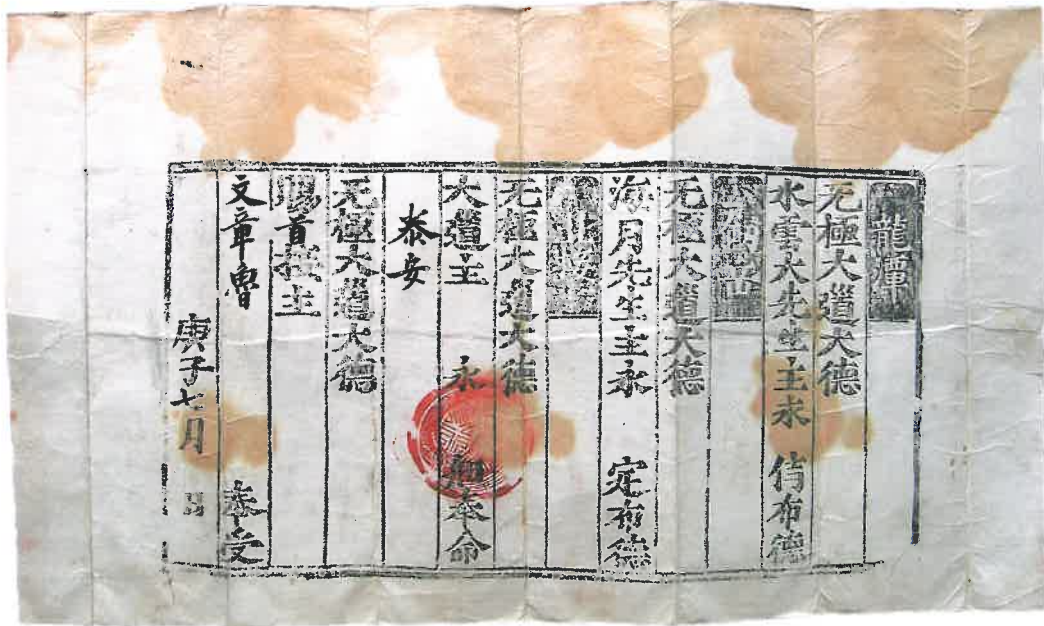 龍潭
无極大道大德
水雲大先生主永 侍布德
无極大道大德
海月先生主永 定布德
无極大道大德
大道主 永 知奉命
泰安
无極大道大德
首接主
文章魯 奉受
庚子七月 日